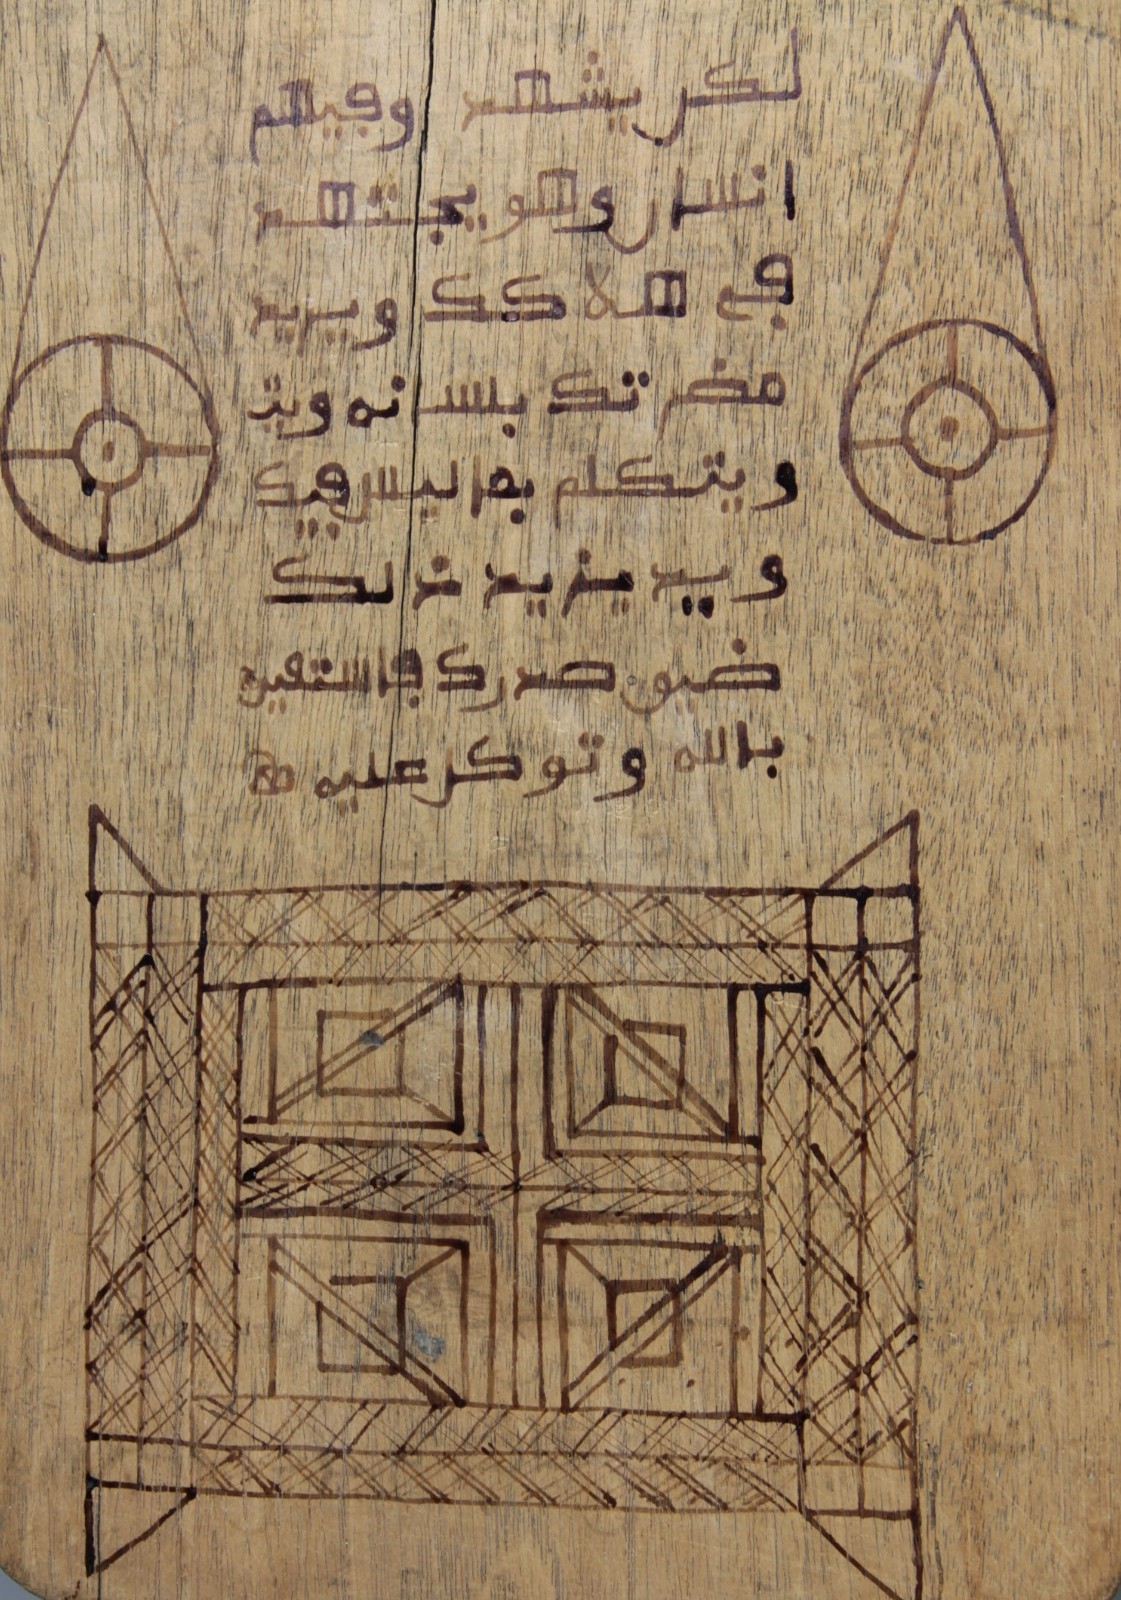 لكل يشهد وفيهم
انسان وهو يجتهد
في هلا كك ويريد
مضر تك بلسا نه ويد
و يتكلم بما ليس فيك
و يريد يزيد ذلك
ضيق صدرك فاستعين
بالله و تو كل عليه